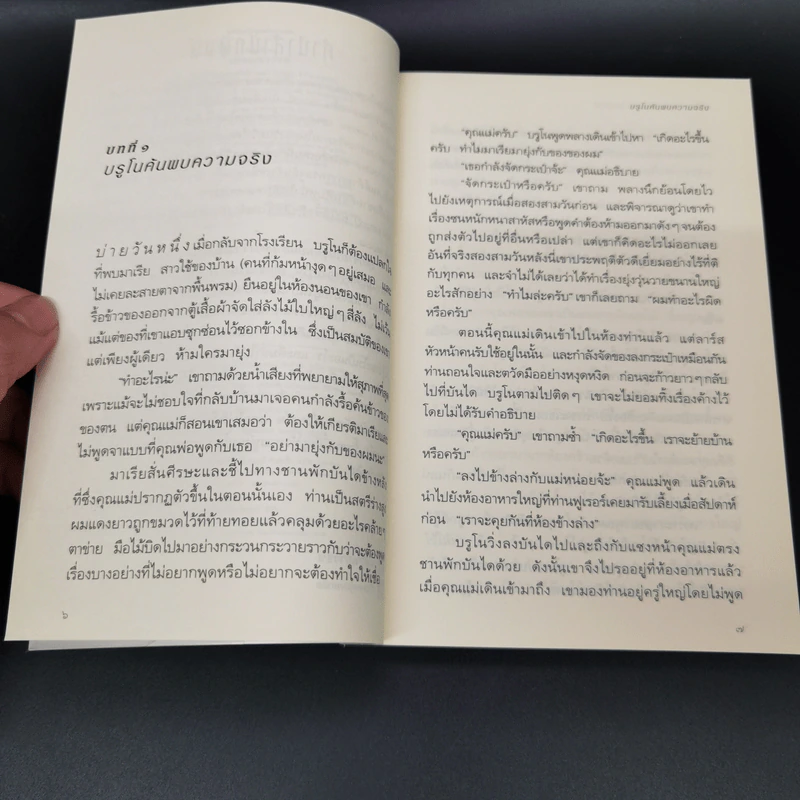 บทที่ ๑
บรูโนค้นพบความจริง
บ่ายวันหนึ่ง เมื่อกลับจากโรงเรียน บรูโนก็ต้องแปลกใจ
ที่พบมาเรีย สาวใช้ของบ้าน (คนที่ก้มหน้างุดๆ อยู่เสมอ และ
ไม่เคยละสายตาจากพื้นพรม) ยืนอยู่ในห้องนอนของเขา กำลัง
รื้อข้าวของออกจากตู้เสื้อผ้าจัดใส่ลังไม้ใบใหญ่ๆ สี่ลัง ไม่เว้น
แม้แต่ของที่เขาแอบซุกซ่อนไว้ซอกข้างใน ซึ่งเป็นสมบัติของเขา
แต่เพียงผู้เดียว ห้ามใครมายุ่ง
“ทำอะไรน่ะ” เขาถามด้วยน้ำเสียงที่พยายามให้สุภาพที่สุด
เพราะแม้จะไม่ชอบใจที่กลับบ้านมาเจอคนกำลังรื้อค้นข้าวของ
ของตน แต่คุณแม่ก็สอนเขาเสมอว่า ต้องให้เกียรติมาเรียและ
ไม่พูดจาแบบที่คุณพ่อพูดกับเธอ “อย่ามายุ่งกับของผมนะ”
มาเรียสั่นศีรษะและชี้ไปทางชานพักบันไดข้างหลัง
ที่ซึ่งคุณแม่ปรากฏตัวขึ้นในตอนนั้นเอง ท่านเป็นสตรีร่างสูง
ผมแดงยาวถูกขมวดไว้ที่ท้ายทอยแล้วคลุมด้วยอะไรคล้ายๆ
ตาข่าย มือไม้บิดไปมาอย่างกระวนกระวายราวกับว่าจะต้องพูด
เรื่องบางอย่างที่ไม่อยากพูดหรือไม่อยากจะต้องทำใจให้เชื่อ
๖
บรูโนค้นพบความจริง
“คุณแม่ครับ” บรูโนพูดพลางเดินเข้าไปหา “เกิดอะไรขึ้น
ครับ ทำไมมาเรียมายุ่งกับของของผม”
“เธอกำลังจัดกระเป๋าจ้ะ” คุณแม่อธิบาย
“จัดกระเป๋าหรือครับ” เขาถาม พลางนึกย้อนโดยไว
ไปยังเหตุการณ์เมื่อสองสามวันก่อน และพิจารณาดูว่าเขาทำ
เรื่องซนหนักหนาสาหัสหรือพูดคำต้องห้ามออกมาดังๆ จนต้อง
ถูกส่งตัวไปอยู่ที่อื่นหรือเปล่า แต่เขาก็คิดอะไรไม่ออกเลย
อันที่จริงสองสามวันหลังนี้เขาประพฤติตัวดีเยี่ยมอย่างไร้ที่ติ
กับทุกคน และจำไม่ได้เลยว่าได้ทำเรื่องยุ่งวุ่นวายขนานใหญ่
อะไรสักอย่าง “ทำไมล่ะครับ” เขาก็เลยถาม “ผมทำอะไรผิด
หรือครับ”
ตอนนี้คุณแม่เดินเข้าไปในห้องท่านแล้ว แต่ลาร์ส
หัวหน้าคนรับใช้อยู่ในนั้น และกำลังจัดของลงกระเป๋าเหมือนกัน
ท่านถอนใจและตวัดมืออย่างหงุดหงิด ก่อนจะก้าวยาวๆ กลับ
ไปที่บันได บรูโนตามไปติดๆ เขาจะไม่ยอมทิ้งเรื่องค้างไว้
โดยไม่ได้รับคำอธิบาย
“คุณแม่ครับ” เขาถามซ้ำ “เกิดอะไรขึ้น เราจะย้ายบ้าน
หรือครับ”
“ลงไปข้างล่างกับแม่หน่อยจ้ะ” คุณแม่พูด แล้วเดิน
นำไปยังห้องอาหารใหญ่ที่ท่านฟูเรอร์เคยมารับเลี้ยงเมื่อสัปดาห์
ก่อน “เราจะคุยกันที่ห้องข้างล่าง”
บรูโนวิ่งลงบันไดไปและถึงกับแซงหน้าคุณแม่ตรง
ชานพักบันไดด้วย ดังนั้นเขาจึงไปรออยู่ที่ห้องอาหารแล้ว
เมื่อคุณแม่เดินเข้ามาถึง เขามองท่านอยู่ครู่ใหญ่โดยไม่พูด
๗